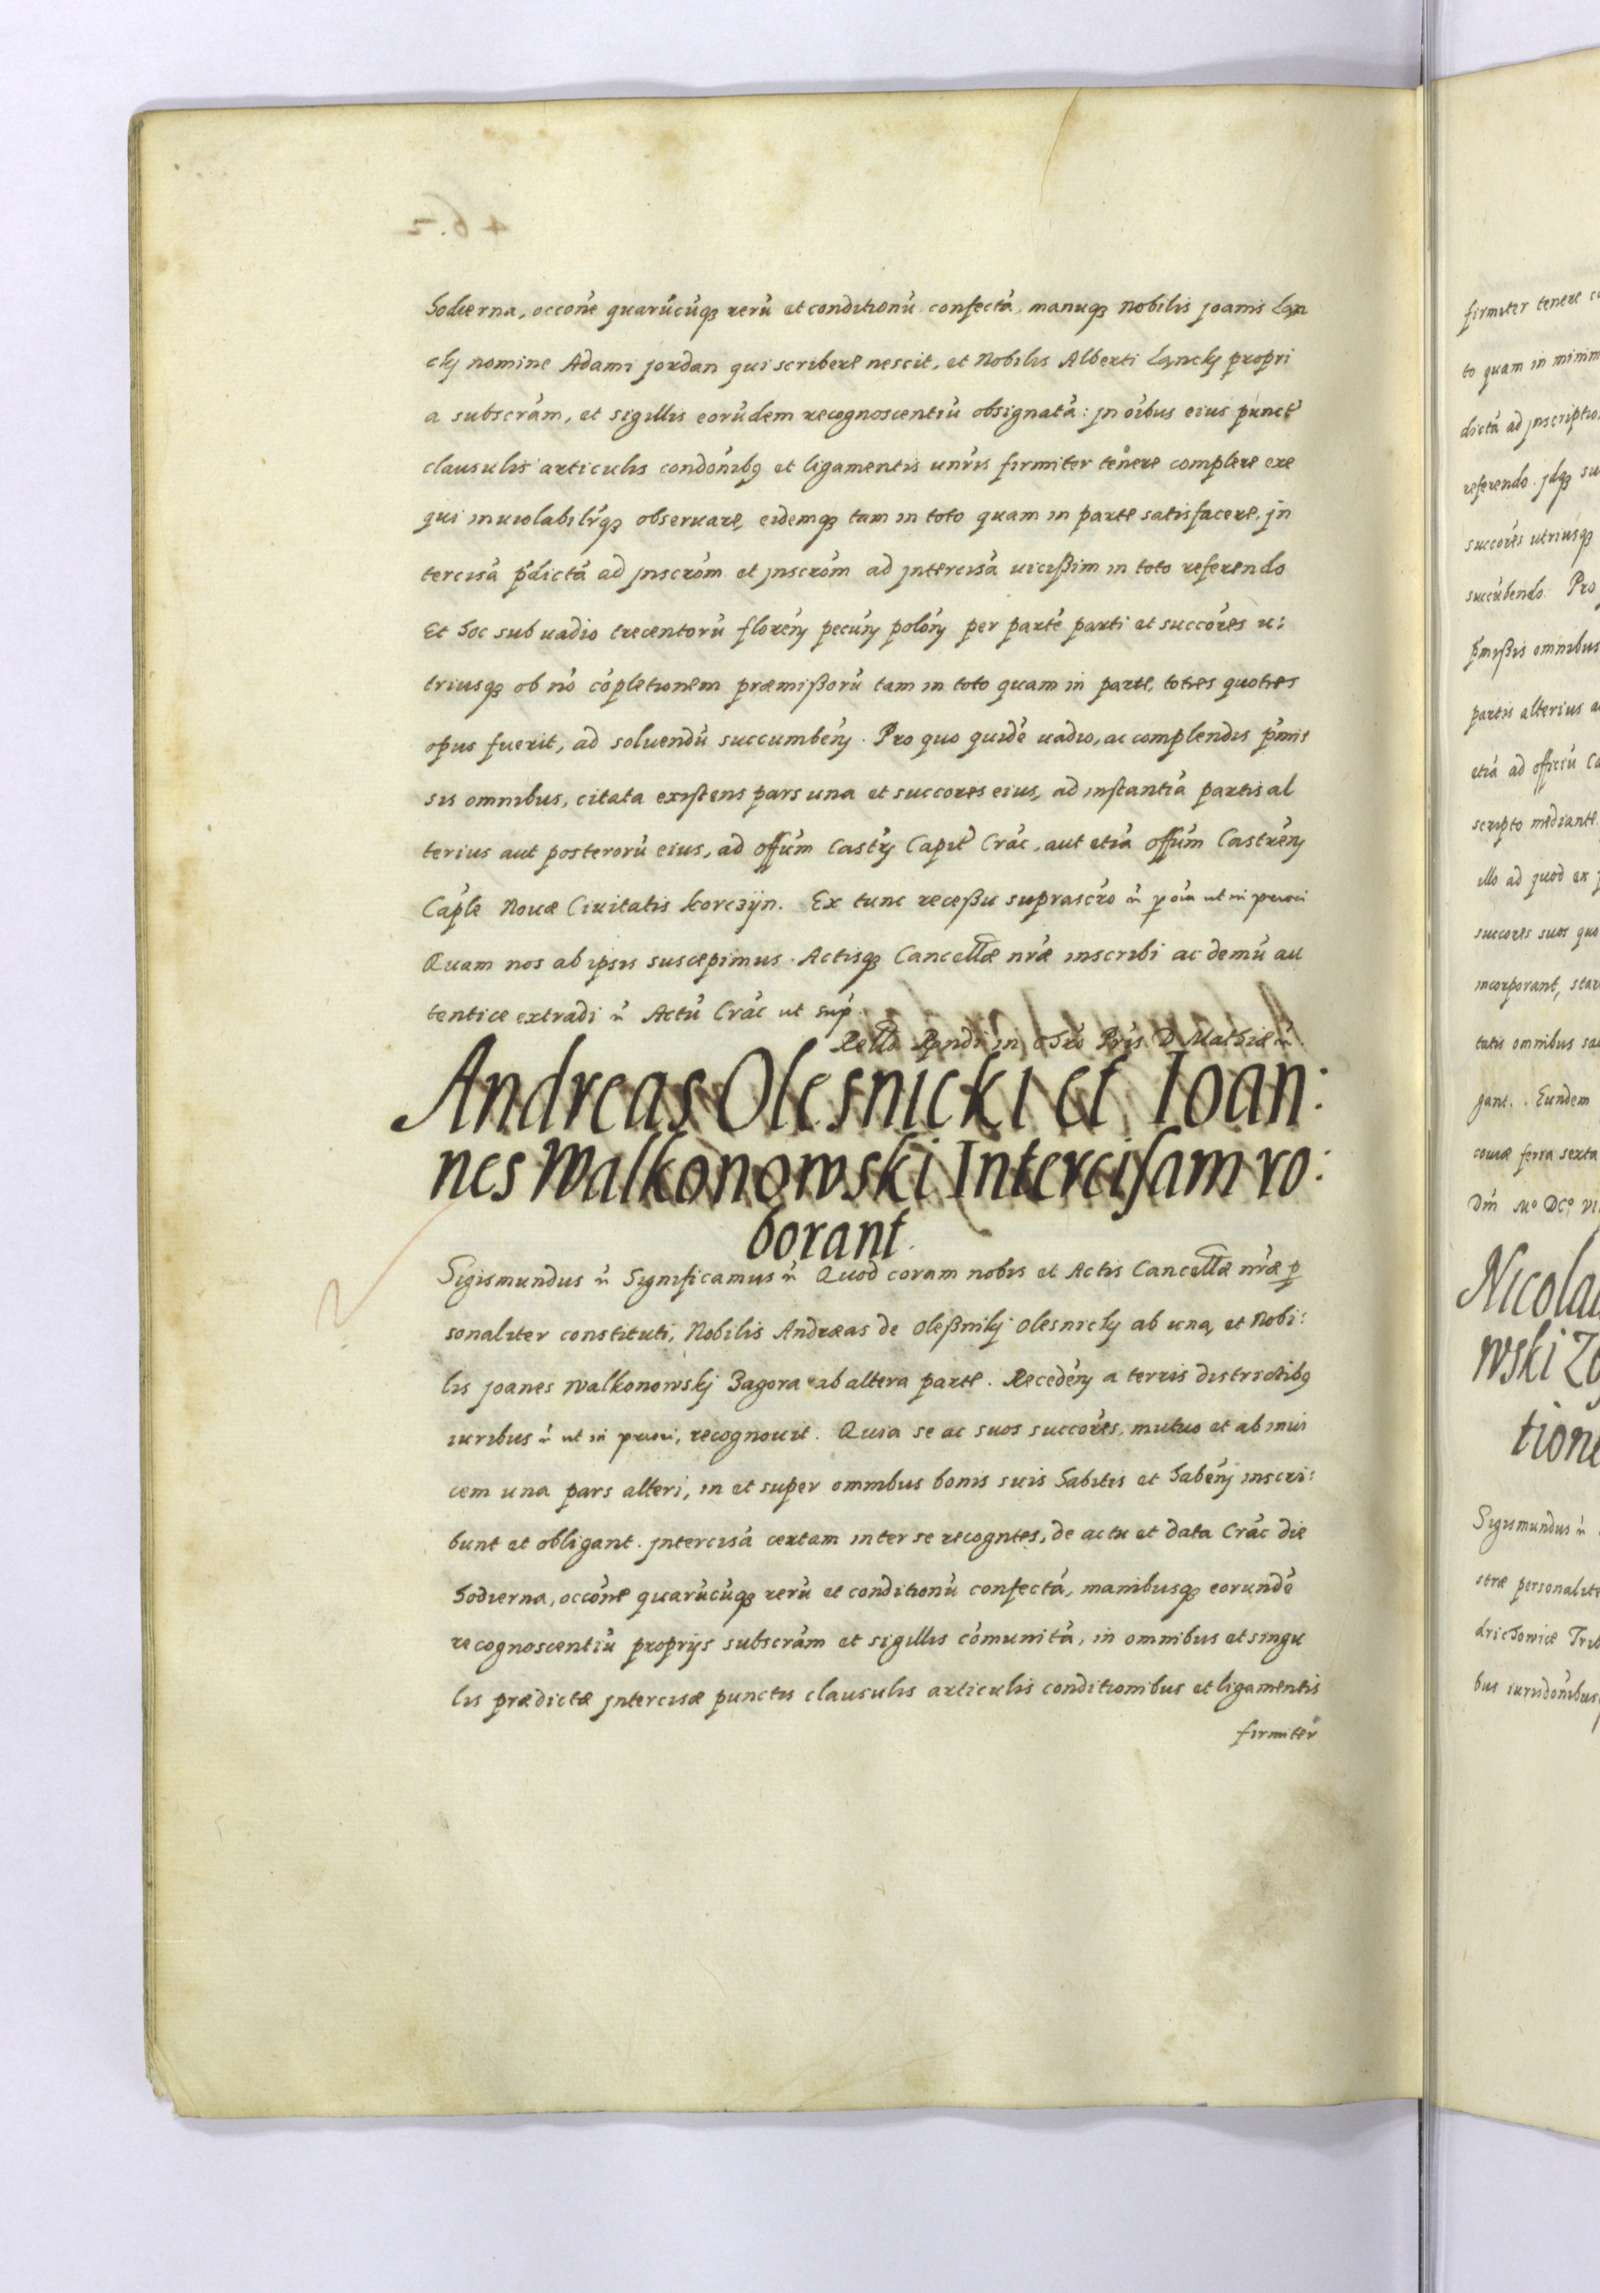 hodierna, occone quarucuq reru et conditionu confecta, manuq nobilis Joanis Lan
ckj nomine Adami Jordan qui scribere nescit, et Nobilis Alberti Lanckj propri
a subscram, et sigillis eorudem recognoscentiu obsignata: jn oibus eius punct
clausulis articulis condonibq et ligamentis unris firmiter tenere complere exe
qui inuiolabilrq obseruare, eidemq tam in toto quam in parte satisfacere, jn
tercisa pdicta ad jnscrom et jnscrom ad jntercisa uicißim in toto referendo
Et hoc sub uadio trecentoru floreny pecuny polony per parte parti et succores u:
triusq ob no copletionem præmißoru tam in toto quam in parte, toties quoties
opus fuerit, ad soluendu succumbeny. Pro quo quide uadio, ac complendis pmis
sis omnibus, citata existens pars una et succores eius, ad instantia partis al
terius aut posteroru eius, ad offum Castry Capit Crac, aut etia offum Castreny
Caple Nouæ Ciuitatis Korczyn. Ex tunc receßu suprascro ut in priori
Quam nos ab ipsis suscepimus. Actisq Cancellæ nræ inscribi ac demu au
tentice extradi Actu Crac ut sup
Rello Rndi in Chro Pris D. Mathiæ
Andreas Olesnicki et Ioan:
nes Walkonowski Intercisam ro:
borant.
Sigismundus Significamus Quod coram nobis et Actis Cancellæ nræ p
sonaliter constituti, Nobilis Andreas de Oleßnikj Olesnickj ab una, et Nobi:
lis Joanes Walkonowskj Zagora ab altera parte. Recedeny a terris districtibq
iuribus ut in priori, recognouit. Quia se ac suos succores, mutuo et ab inui
cem una pars alteri, in et super omnibus bonis suis habitis et habenj inscri:
bunt et obligant. jntercisa certam inter se recogntes, de actu et data Crac die
hodierna, occone quarucuq reru et conditionu confecta, manibusq eorunde
recognoscentiu proprijs subscram et sigillis comunita, in omnibus et singu
lis prædictæ jntercisæ punctis clausulis articulis conditionibus et ligamentis
firmiter
firmiter tenere
to quam in minim
dicta ad jnscriptio
referendo. jdq su
succores utriusq
succubendo. Pro
pmißis omnibus
partis alterius a
etia ad officiu Ca
scripto mediante.
illo ad quod ex
succores suos quo
incorporant, star
tatis omnibus sa
gant. Eundem
couiæ feria sexta
Nicola
wski
tione
Sigismundus
stræ personalite